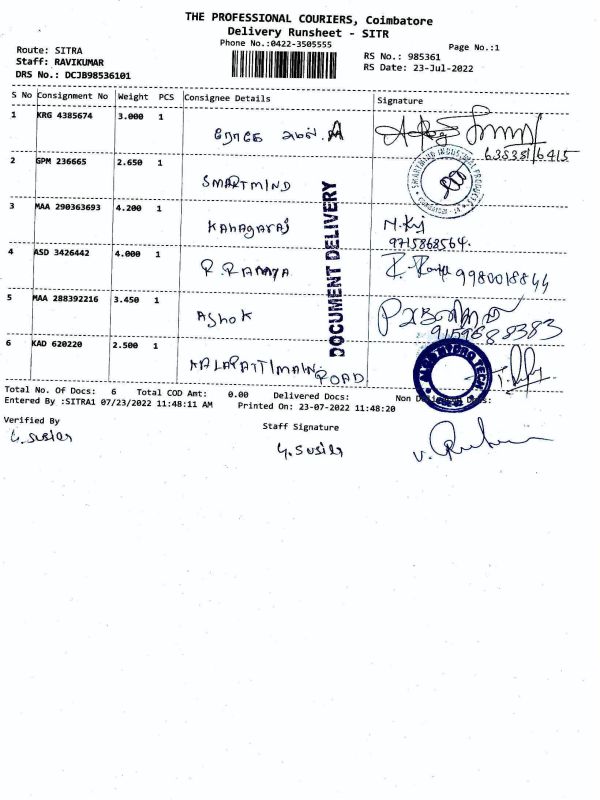 THE PROFESSIONAL COURIERS, Coimbatore
Delivery Runsheet - SITR
Phone No.:0422-3505555
Page No.:1
Route: SITRA
Staff: RAVIKUMAR
DRS No.: DCJB98536101
RS No.: 985361
RS Date: 23-Jul-2022
S No Consignment No Weight PCS Consignee Details Signature
1 KRG 4385674 3.000 1
2 GPM 236665 2.650 1 SMARTMIND
3 MAA 290363693 4.200 1 KANAGARAJ
9715868564.
4 ASD 3426442 4.000 1 R.RAMYA 9980018844
5 MAA 288392216 3.450 1 AShoK
6 KAD 620220 2.500 1 KALAPATTI MAIN ROAD
DOCUMENT DELIVERY
Total No. Of Docs: 6 Total COD Amt: 0.00 Delivered Docs: Non
Entered By :SITRA1 07/23/2022 11:48:11 AM Printed On: 23-07-2022 11:48:20
Verified By
Staff Signature